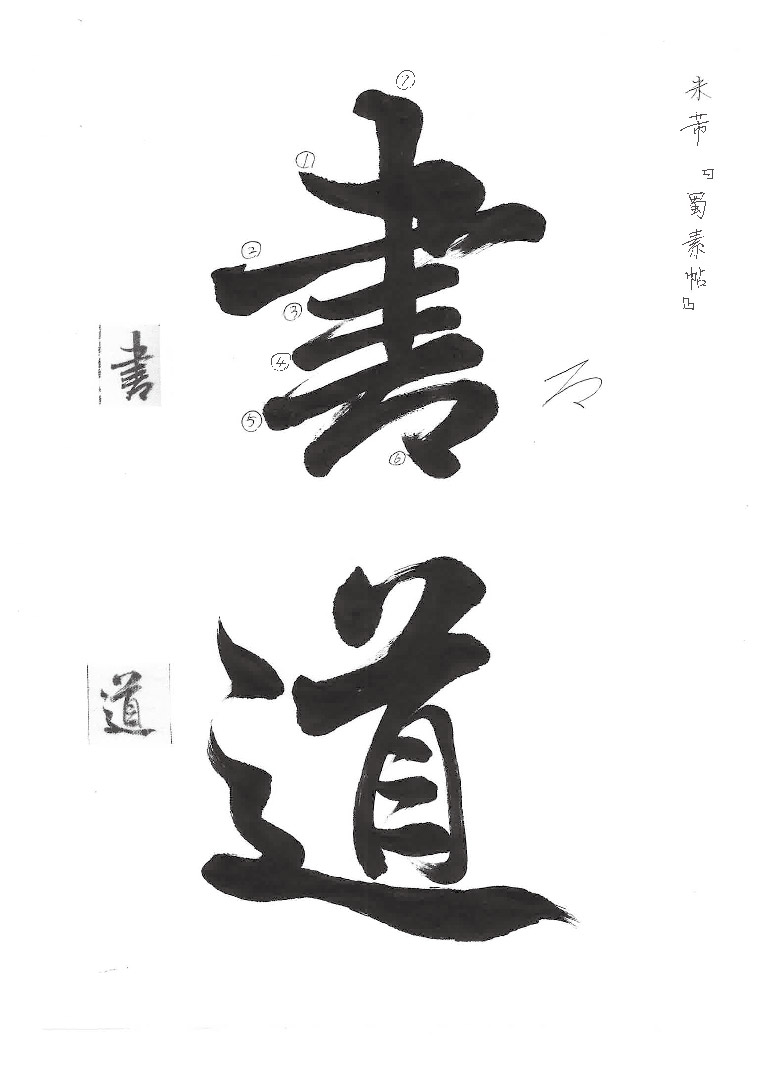 米芾『蜀素帖』
書道
⑦
①
②
③
④
⑤
⑥
書
道